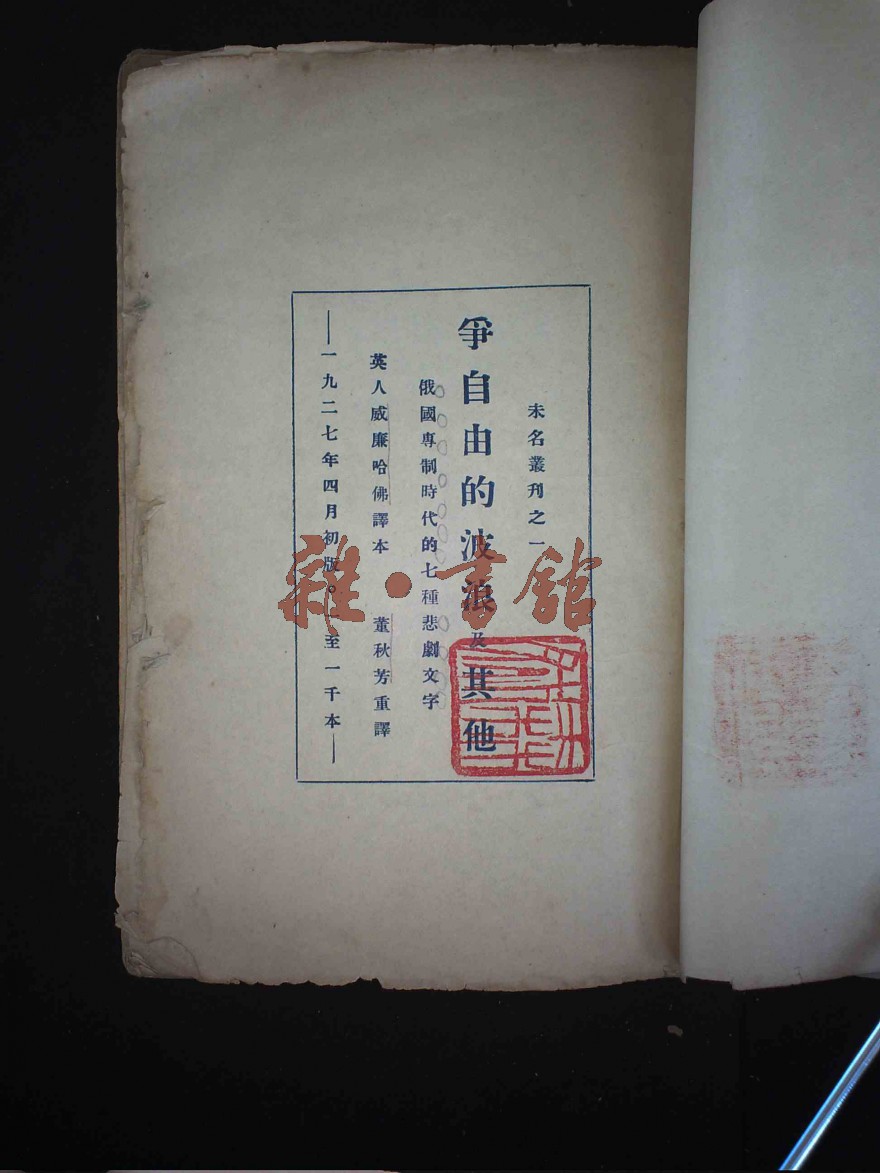 未名叢刊之一
爭自由的波浪及其他
俄國專制時代的七種悲劇文字
英人威廉哈佛譯本 董秋芳重譯
—一九二七年四月初版。一至一千本—
雜·書館